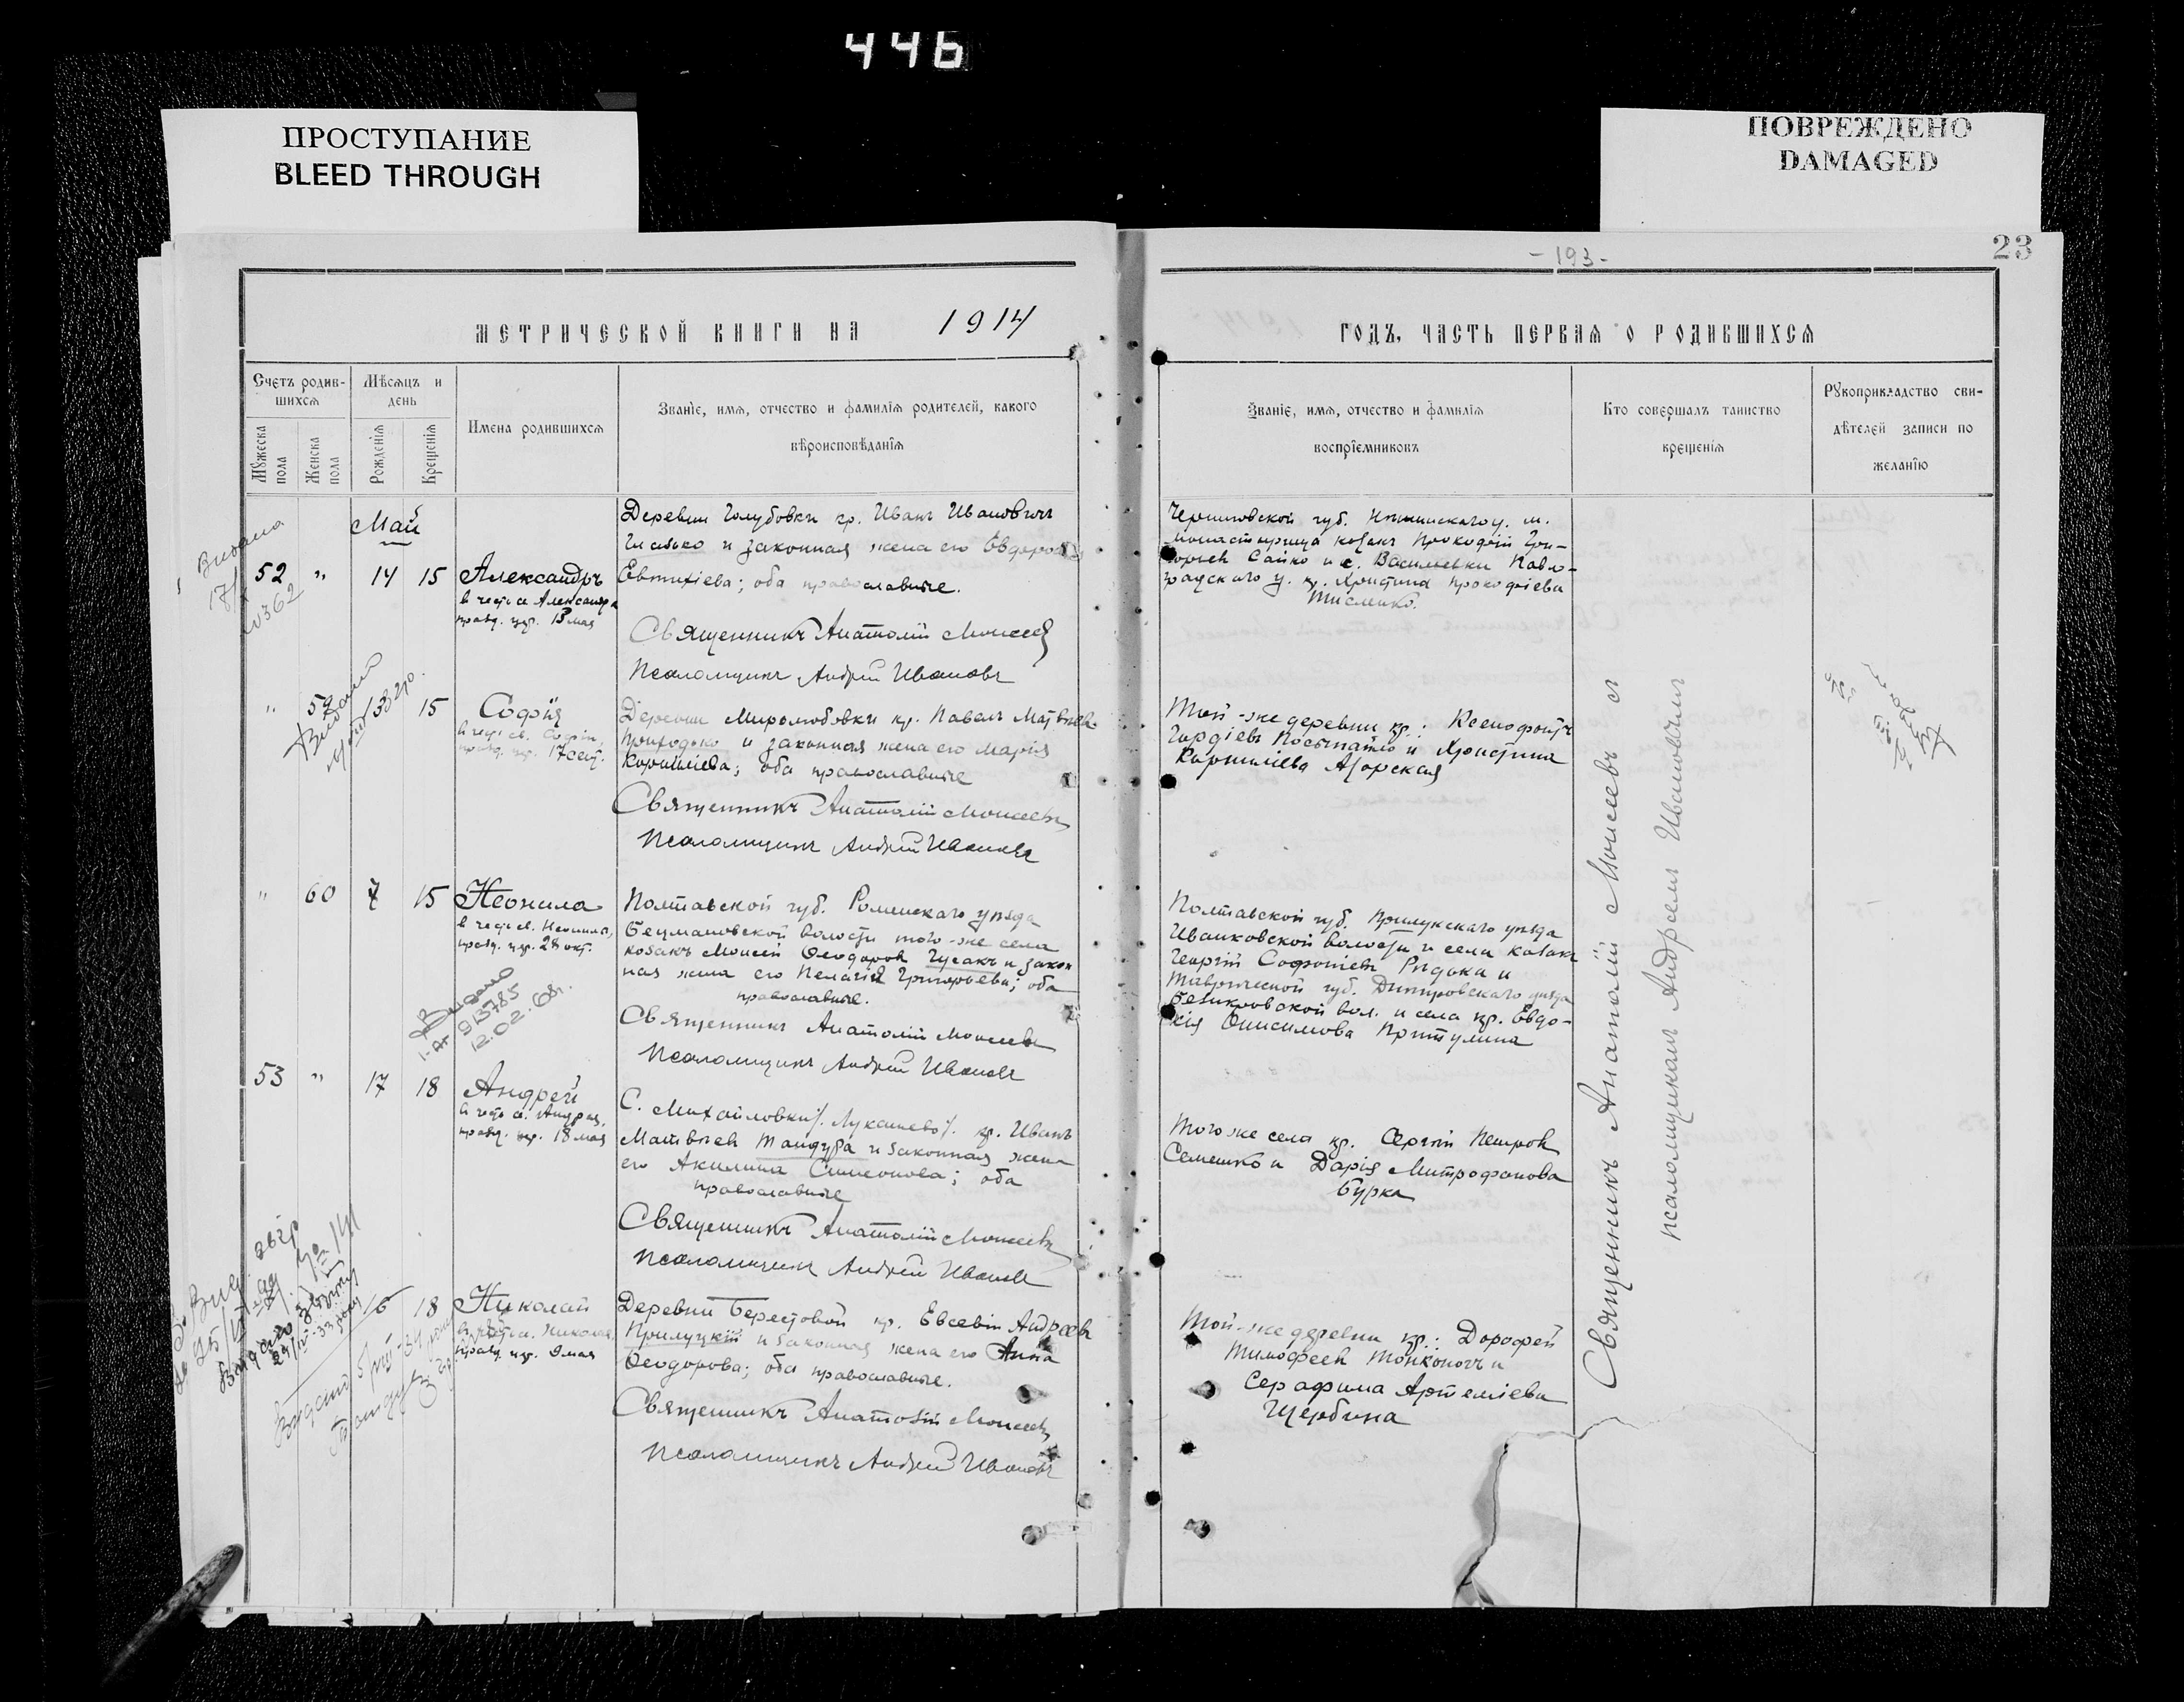 446
ПРОСТУПАНИЕ
BLEED THROUGH
ПОВРЕЖДЕНО
DAMAGED
- 193 -
23
МЕТРИЧЕСКОЙ КНИГИ НА 1914
ГОДЪ, ЧАСТЬ ПЕРВАЯ О РОДИВШИХСЯ
Счетъ родив-
шихся
Мѣсяцъ и
день
Мужеска
пола
Женска
пола
Рожденія
Крещенія
Имена родившихся
Званіе, имя, отчество и фамилія родителей, какого
вѣроисповѣданія
Званіе, имя, отчество и фамилія
воспріемниковъ
Кто совершалъ таинство
крещенія
Рукоприкладство сви-
дѣтелей записи по
желанію
Май
52 " 14 15 Александръ
в честь св. Александра
празд. цр. 13 мая
Деревни Голубовки кр. Иванъ Ивановичъ
и законная жена его
Евтихіева; оба православные.
Священникъ Анатолій Моисеевъ
Псаломщикъ Андрей Ивановъ
Черниговской губ. Нѣжинскаго у. м.
Монастырища козакъ Прокофій Гри-
горьевъ Сайко и с. Васильевки Павло-
градскаго у. кр. Христина Прокофіева
Тисленко.
" 59 13 15 Софія
в честь св. Софіи,
празд. цр. 17 сент.
Деревни Миролюбовки кр. Павелъ Матвѣевъ
Приходько и законная жена его Марія
Корниліева; оба православные
Священникъ Анатолій Моисеевъ
Псаломщикъ Андрей Ивановъ
Той-же деревни кр.: Ксенофонтъ
Гордіевъ и Христина
Корниліева Азорская
" 60 7 15 Неонила
в честь св. Неонилы,
празд. цр. 28 окт.
Полтавской губ. Роменскаго уѣзда
волости того-же села
козакъ Моисей Ѳеодоровъ Гусакъ и закон
ная жена его Пелагія Григорьева; оба
православные.
Священникъ Анатолій Моисеевъ
Псаломщикъ Андрей Ивановъ
Полтавской губ. Прилукскаго уѣзда
Иванковской волости и села козакъ
Георгій Софоніевъ Рѣдька и
Таврической губ. Днѣпровскаго уѣзда
вол. и села кр. Евдо-
кія Онисимова Притулина
Видано
1-АГ 913785
12.02.68г.
53 " 17 18 Андрей
в честь св. Андрея,
празд. цр. 18 мая
С. Михайловки /. Лукашево /. кр. Иванъ
Матвѣевъ Тандура и законная жена
его Акилина Симеонова; оба
православные
Священникъ Анатолій Моисеевъ
Псаломщикъ Андрей Ивановъ
Того же села кр. Сергій Петровъ
Семешко и Дарія Митрофанова
Бурка
16 18 Николай
в честь св. Николая,
празд. цр. 9 мая
Деревни Берестовой кр. Евсевій Андреевъ
Прилуцкій и законная жена его Анна
Ѳеодорова; оба православные.
Священникъ Анатолій Моисеевъ
Псаломщикъ Андрей Ивановъ
Той-же деревни кр.: Дорофей
Тимофеевъ Тонконогъ и
Серафима Артеміева
Щербина
Священникъ Анатолій Моисеевъ съ
псаломщикомъ Андреемъ Ивановымъ